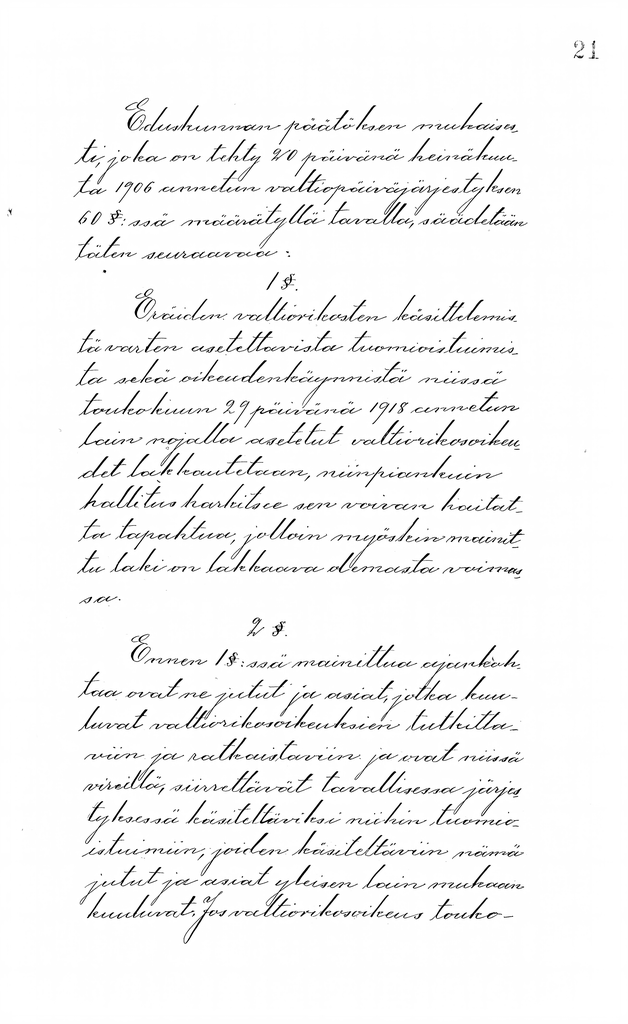 21
Eduskunnan päätöksen mukaises-
ti, joka on tehty 20 päivänä heinäkuu-
ta 1906 annetun valtiopäiväjärjestyksen
60 §:ssä määrätyllä tavalla, säädetään
täten seuraavaa:
1 §.
Eräiden valtiorikosten käsittelemis-
tä varten asetettavista tuomioistuimis-
ta sekä oikeudenkäynnistä niissä
toukokuun 29 päivänä 1918 annetun
lain nojalla asetetut valtiorikosoikeu-
det lakkautetaan, niinpiankuin
hallitus harkitsee sen voivan haitat-
ta tapahtua, jolloin myöskin mainit-
tu laki on lakkaava olemasta voimas-
sa.
2 §.
Ennen 1 §:ssä mainittua ajankoh-
taa ovat ne jutut ja asiat, jotka kuu-
luvat valtiorikosoikeuksien tutkitta-
viin ja ratkaistaviin ja ovat niissä
vireillä, siirrettävät tavallisessa järjes-
tyksessä käsiteltäviksi niihin tuomio-
istuimiin, joiden käsiteltäviin nämä
jutut ja asiat yleisen lain mukaan
kuuluvat. Jos valtiorikosoikeus touko-